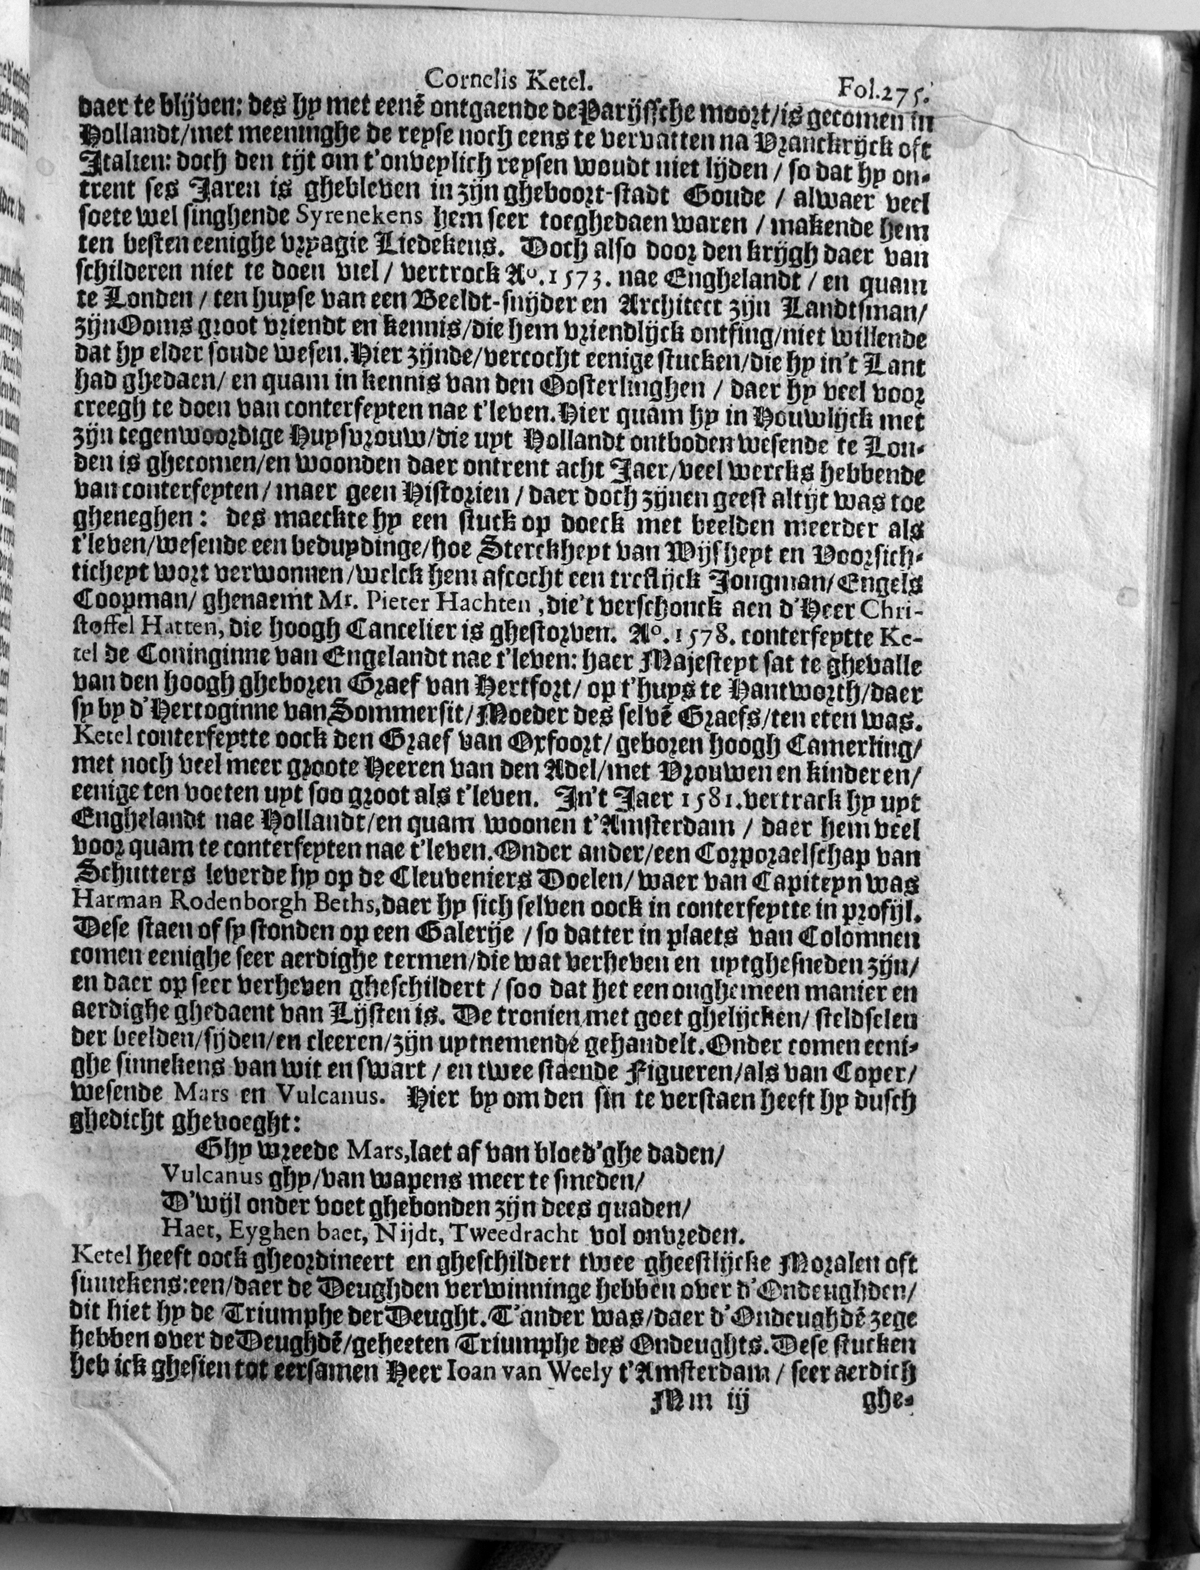 Cornelis Ketel.
Fol.275.
daer te blijven: des hy met eenē ontgaende de Parijssche moort/is gecomen in
Hollandt/met meeninghe de reyse noch eens te vervatten na Vranckrijck oft
Italien: doch den tijt om t'onveylich reysen woudt niet lijden / so dat hy on-
trent ses Jaren is ghebleven in zijn gheboort-stadt Goude / alwaer veel
soete wel singhende Syrenekens hem seer toeghedaen waren / makende hem
ten besten eenighe vryagie Liedekens. Doch also door den krijgh daer van
schilderen niet te doen viel / vertrock Aº.1573. nae Enghelandt / en quam
te Londen / ten huyse van een Beeldt-snijder en Architect zijn Landtsman/
zijn Ooms groot vriendt en kennis/die hem vriendlijck ontfing/niet willende
dat hy elder soude wesen. Hier zijnde/vercocht eenige stucken/die hy in't Lant
had ghedaen/ en quam in kennis van den Oosterlinghen / daer hy veel voor
creegh te doen van conterfeyten nae t'leven. Hier quam hy in Houwlijck met
zijn tegenwoordige Huysvrouw/die uyt Hollandt ontboden wesende te Lon-
den is ghecomen/en woonden daer ontrent acht Jaer/veel wercks hebbende
van conterfeyten / maer geen Historien / daer doch zijnen geest altijt was toe
gheneghen: des maeckte hy een stuck op doeck met beelden meerder als
t'leven/wesende een beduydinge/hoe Sterckheyt van Wijsheyt en Voorsich-
ticheyt wort verwonnen/welck hem afcocht een treflijck Jongman/Engels
Coopman/ ghenaemt Mr. Pieter Hachten, die't verschonck aen d'Heer Chri-
stoffel Hatten, die hoogh Cancelier is ghestorven. Aº.1578. conterfeytte Ke-
tel de Coninginne van Engelandt nae t'leven: haer Majesteyt sat te ghevalle
van den hoogh gheboren Graef van Hertfort/ op t'huys te Hantworth/daer
sy by d'Hertoginne van Sommersit/Moeder des selvē Graefs/ten eten was.
Ketel conterfeytte oock den Graef van Oxfoort/ geboren hoogh Camerling/
met noch veel meer groote Heeren van den Adel/met Vrouwen en kinderen/
eenige ten voeten uyt soo groot als t'leven. In't Jaer 1581. vertrack hy uyt
Enghelandt nae Hollandt/en quam woonen t'Amsterdam / daer hem veel
voor quam te conterfeyten nae t'leven. Onder ander/een Corporaelschap van
Schutters leverde hy op de Cleuveniers Doelen/ waer van Capiteyn was
Harman Rodenborgh Beths, daer hy sich selven oock in conterfeytte in profijl.
Dese staen of sy stonden op een Galerije / so datter in plaets van Colomnen
comen eenighe seer aerdighe termen/die wat verheven en uytghesneden zijn/
en daer op seer verheven gheschildert / soo dat het een onghemeen manier en
aerdighe ghedaent van Lijsten is. De tronien met goet ghelijcken/ steldselen
der beelden/sijden/en cleeren/zijn uytnemende gehandelt. Onder comen eeni-
ghe sinnekens van wit en swart / en twee staende Figueren/als van Coper/
wesende Mars en Vulcanus. Hier by om den sin te verstaen heeft hy dusch
ghedicht ghevoeght:
Ghy wreede Mars, laet af van bloed'ghe daden/
Vulcanus ghy/van wapens meer te smeden/
D'wijl onder voet ghebonden zijn dees quaden/
Haet, Eyghen baet, Nijdt, Tweedracht vol onvreden.
Ketel heeft oock gheordineert en gheschildert twee gheestlijcke Moralen oft
sinnekens: een/daer de Deughden verwinninge hebben over d'Ondeughden/
dit hiet hy de Triumphe der Deught. T'ander was/daer d'Ondeughdē zege
hebben over de Deughdē/geheeten Triumphe des Ondeughts. Dese stucken
heb ick ghesien tot eersamen Heer Ioan van Weely t'Amsterdam / seer aerdich
Mm iij
ghe-